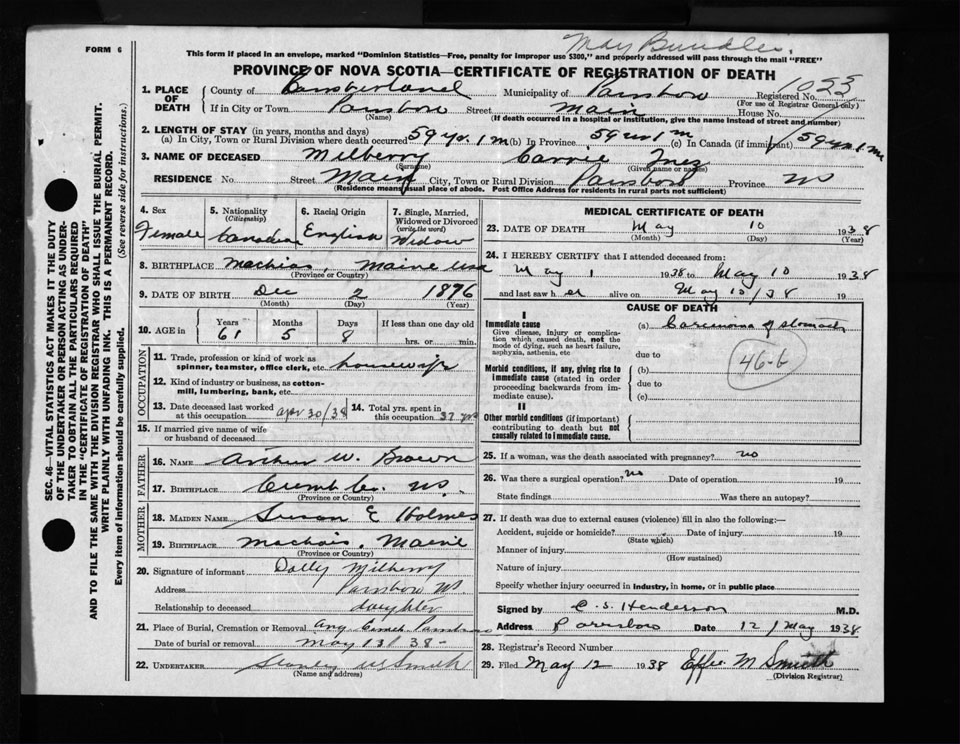 May Bundle.
FORM 6
This form if placed in an envelope, marked "Dominion Statistics—Free, penalty for improper use $300," and properly addressed will pass through the mail "FREE"
PROVINCE OF NOVA SCOTIA—CERTIFICATE OF REGISTRATION OF DEATH
1. PLACE OF DEATH County of Cumberland Municipality of Parrsboro Registered No. 1023
(For use of Registrar General only)
If in City or Town Parrsboro Street Main House No.
(Name) (If death occurred in a hospital or institution, give the name instead of street and number)
2. LENGTH OF STAY (in years, months and days)
(a) In City, Town or Rural Division where death occurred 59 yr. 1 m (b) In Province 59 yrs 1 m (c) In Canada (if immigrant) 59 yrs 1 m
3. NAME OF DECEASED Milberry Carrie Inez
(Surname) (Given name or names)
RESIDENCE No. Street Main City, Town or Rural Division Parrsboro Province NS
(Residence means usual place of abode. Post Office Address for residents in rural parts not sufficient)
4. Sex Female
5. Nationality (Citizenship) Canadian
6. Racial Origin English
7. Single, Married, Widowed or Divorced (write the word) Widow
8. BIRTHPLACE Machias, Maine USA
(Province or Country)
9. DATE OF BIRTH Dec 2 1876
(Month) (Day) (Year)
10. AGE in Years 61 Months 5 Days 8 If less than one day old
hrs. or min.
OCCUPATION
11. Trade, profession or kind of work as spinner, teamster, office clerk, etc. housewife
12. Kind of industry or business, as cotton-mill, lumbering, bank, etc.
13. Date deceased last worked at this occupation Apr 30/38
14. Total yrs. spent in this occupation 37 yrs
15. If married give name of wife or husband of deceased
FATHER
16. NAME Archer W. Brown
17. BIRTHPLACE Cumb Co. NS.
(Province or Country)
MOTHER
18. MAIDEN NAME Susan E Holmes
19. BIRTHPLACE Machais, Maine
(Province or Country)
20. Signature of informant Dolly Milberry
Address Parrsboro NS.
Relationship to deceased daughter
21. Place of Burial, Cremation or Removal
Date of burial or removal May 13/38-
22. UNDERTAKER Stanley W Smith
(Name and address)
MEDICAL CERTIFICATE OF DEATH
23. DATE OF DEATH May 10 1938
(Month) (Day) (Year)
24. I HEREBY CERTIFY that I attended deceased from:
May 1 1938 to May 10 1938
and last saw h er alive on May 10/38 19
CAUSE OF DEATH
I
Immediate cause
Give disease, injury or complication which caused death, not the mode of dying, such as heart failure, asphyxia, asthenia, etc
(a) Carcinoma of stomach
due to
46-6
Morbid conditions, if any, giving rise to immediate cause (stated in order proceeding backwards from immediate cause).
(b)
due to
(c)
II
Other morbid conditions (if important) contributing to death but not causally related to immediate cause.
25. If a woman, was the death associated with pregnancy? no
26. Was there a surgical operation? no Date of operation 19
State findings Was there an autopsy?
27. If death was due to external causes (violence) fill in also the following:—
Accident, suicide or homicide? Date of injury 19
(State which)
Manner of injury
(How sustained)
Nature of injury
Specify whether injury occurred in industry, in home, or in public place
Signed by C. S. Henderson M.D.
Address Parrsboro Date 12 / May 1938
28. Registrar's Record Number
29. Filed May 12 1938 Effie M Smith
(Division Registrar)
SEC. 46—VITAL STATISTICS ACT MAKES IT THE DUTY
OF THE UNDERTAKER OR PERSON ACTING AS UNDER-
TAKER TO OBTAIN ALL THE PARTICULARS REQUIRED
IN THE "CERTIFICATE OF REGISTRATION OF DEATH"
AND TO FILE THE SAME WITH THE DIVISION REGISTRAR WHO SHALL ISSUE THE BURIAL PERMIT.
WRITE PLAINLY WITH UNFADING INK. THIS IS A PERMANENT RECORD.
Every item of information should be carefully supplied. (See reverse side for instructions.)